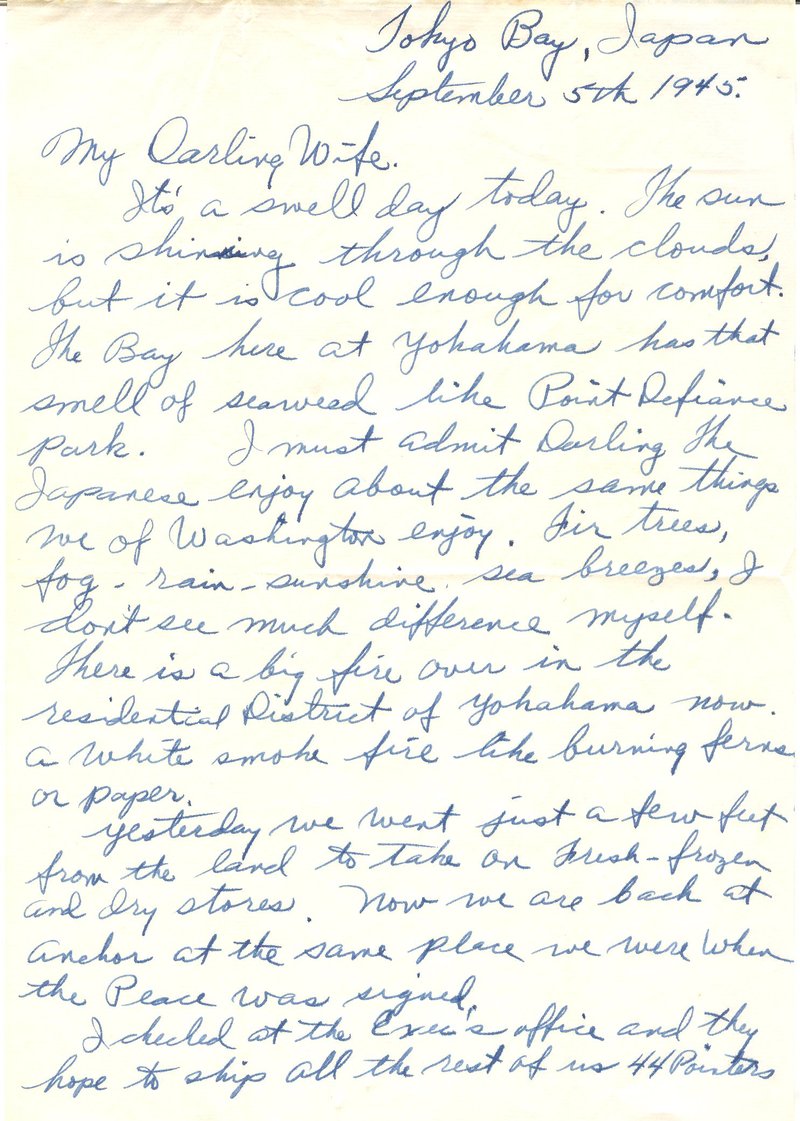 Tokyo Bay, Japan
September 5th 1945.
My Darling Wife.
It's a swell day today. The sun
is shining through the clouds,
but it is cool enough for comfort.
The Bay here at Yokahama has that
smell of seaweed like Point Defiance
Park. I must admit Darling The
Japanese enjoy about the same things
we of Washington enjoy. Fir trees,
fog - rain - sunshine. sea breezes, I
don't see much difference myself.
There is a big fire over in the
residential District of Yokahama now.
a white smoke fire like burning ferns
or paper.
Yesterday we went just a few feet
from the land to take on Fresh-frozen
and dry stores. Now we are back at
anchor at the same place we were when
the Peace was signed.
I checked at the Exec's office and they
hope to ship all the rest of us 44 Pointers